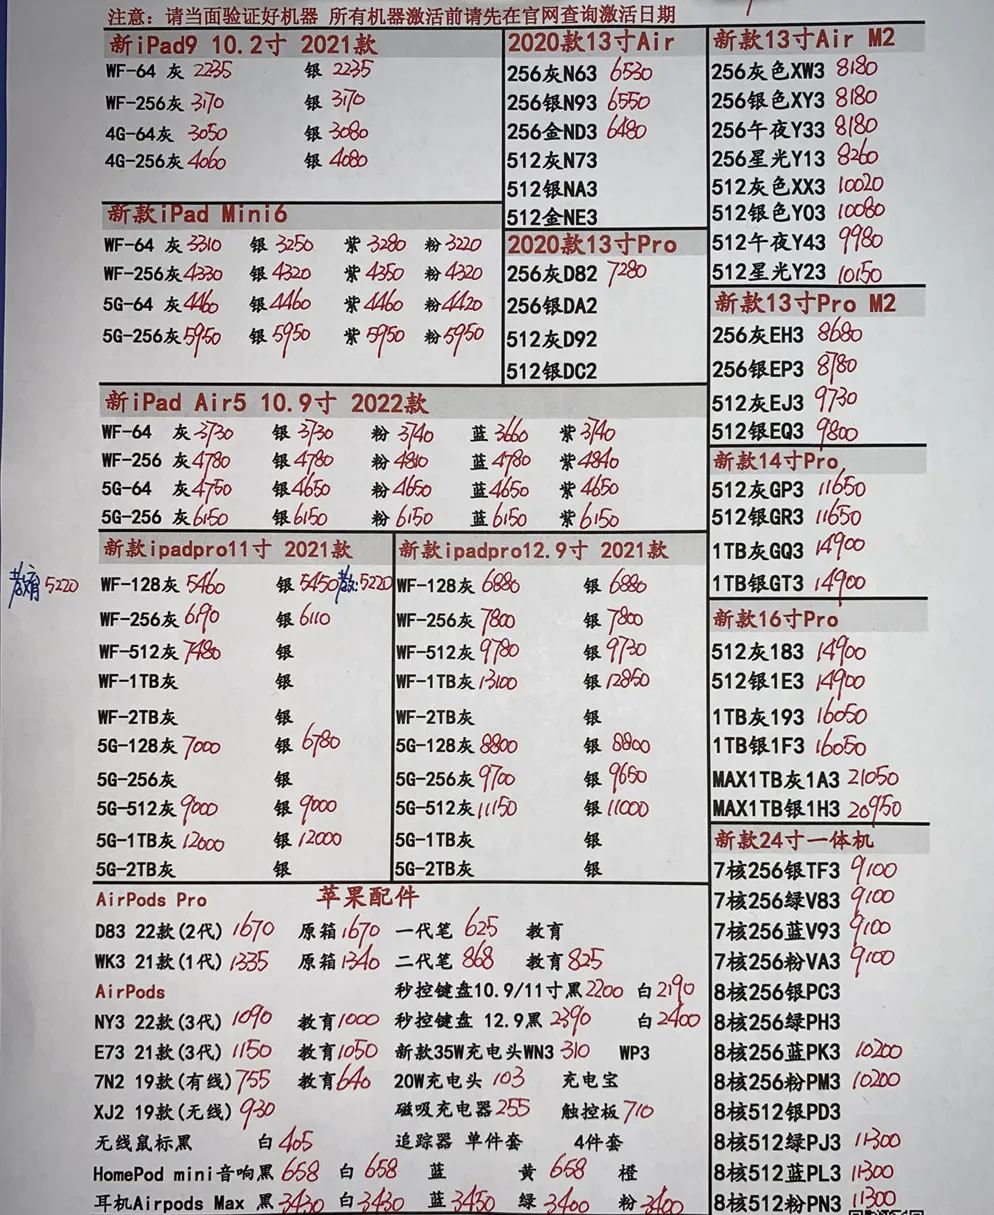 注意：请当面验证好机器 所有机器激活前请先在官网查询激活日期
新iPad9 10.2寸 2021款
WF-64 灰 2235 银 2235
WF-256灰 3170 银 3170
4G-64灰 3050 银 3080
4G-256灰 4060 银 4080
新款iPad Mini6
WF-64 灰 3310 银 3250 紫 3280 粉 3220
WF-256灰 4330 银 4320 紫 4350 粉 4320
5G-64 灰 4460 银 4460 紫 4460 粉 4420
5G-256灰 5950 银 5950 紫 5950 粉 5950
2020款13寸Air
256灰N63 6530
256银N93 6550
256金ND3 6480
512灰N73
512银NA3
512金NE3
2020款13寸Pro
256灰D82 7280
256银DA2
512灰D92
512银DC2
新iPad Air5 10.9寸 2022款
WF-64 灰 3730 银 3730 粉 3740 蓝 3660 紫 3740
WF-256 灰 4780 银 4780 粉 4810 蓝 4780 紫 4840
5G-64 灰 4750 银 4650 粉 4650 蓝 4650 紫 4650
5G-256 灰 6150 银 6150 粉 6150 蓝 6150 紫 6150
新款ipadpro11寸 2021款
教育 5220 WF-128灰 5460 银 5450 教: 5220
WF-256灰 6190 银 6110
WF-512灰 7480 银
WF-1TB灰 银
WF-2TB灰 银
5G-128灰 7000 银 6780
5G-256灰 银
5G-512灰 9000 银 9000
5G-1TB灰 12000 银 12000
5G-2TB灰 银
新款ipadpro12.9寸 2021款
WF-128灰 6880 银 6880
WF-256灰 7800 银 7800
WF-512灰 9780 银 9730
WF-1TB灰 13100 银 12850
WF-2TB灰 银
5G-128灰 8800 银 8800
5G-256灰 9700 银 9650
5G-512灰 11150 银 11000
5G-1TB灰 银
5G-2TB灰 银
苹果配件
AirPods Pro
D83 22款(2代) 1670 原箱 1670 一代笔 625 教育
WK3 21款(1代) 1335 原箱 1340 二代笔 868 教育 825
AirPods 秒控键盘10.9/11寸黑 2200 白 2190
NY3 22款(3代) 1090 教育 1000 秒控键盘 12.9黑 2390 白 2400
E73 21款(3代) 1150 教育 1050 新款35W充电头WN3 310 WP3
7N2 19款(有线) 755 教育 640 20W充电头 103 充电宝
XJ2 19款(无线) 930 磁吸充电器 255 触控板 710
无线鼠标黑 白 405 追踪器 单件套 4件套
HomePod mini音响黑 658 白 658 蓝 黄 658 橙
耳机Airpods Max 黑 3430 白 3430 蓝 3450 绿 3400 粉 3400
新款13寸Air M2
256灰色XW3 8180
256银色XY3 8180
256午夜Y33 8180
256星光Y13 8260
512灰色XX3 10020
512银色Y03 10080
512午夜Y43 9980
512星光Y23 10150
新款13寸Pro M2
256灰EH3 8680
256银EP3 8780
512灰EJ3 9730
512银EQ3 9800
新款14寸Pro
512灰GP3 11650
512银GR3 11650
1TB灰GQ3 14900
1TB银GT3 14900
新款16寸Pro
512灰183 14900
512银1E3 14900
1TB灰193 16050
1TB银1F3 16050
MAX1TB灰1A3 21050
MAX1TB银1H3 20950
新款24寸一体机
7核256银TF3 9100
7核256绿V83 9100
7核256蓝V93 9100
7核256粉VA3 9100
8核256银PC3
8核256绿PH3
8核256蓝PK3 10200
8核256粉PM3 10200
8核512银PD3
8核512绿PJ3 11300
8核512蓝PL3 11300
8核512粉PN3 11300